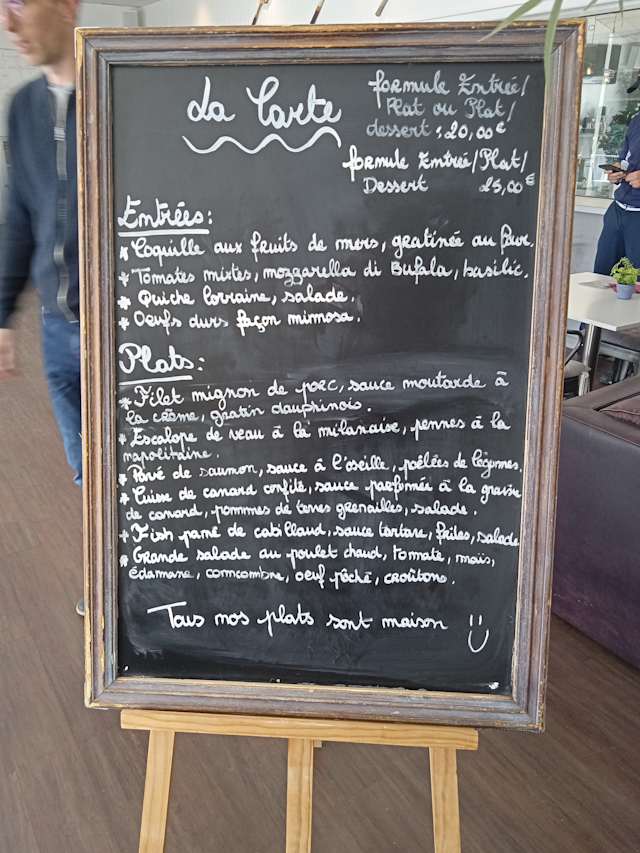 La Carte
formule Entrée/
Plat ou Plat/
dessert : 20,00€
formule Entrée/Plat/
Dessert 25,00€
Entrées:
* Coquille aux fruits de mers, gratinée au four.
* Tomates mixtes, mozzarella di Bufala, basilic.
* Quiche lorraine, salade.
* Oeufs durs façon mimosa.
Plats:
* Filet mignon de porc, sauce moutarde à
la crème, gratin dauphinois.
* Escalope de veau à la milanaise, pennes à la
napolitaine.
* Pavé de saumon, sauce à l'oseille, poêlées de légumes.
* Cuisse de canard confite, sauce parfumée à la graisse
de canard, pommes de terres grenailles, salade.
* Fish pané de cabillaud, sauce tartare, frites, salade
* Grande salade au poulet chaud, tomate, maïs,
édamame, concombre, oeuf pôché, croûtons.
Tous nos plats sont maison